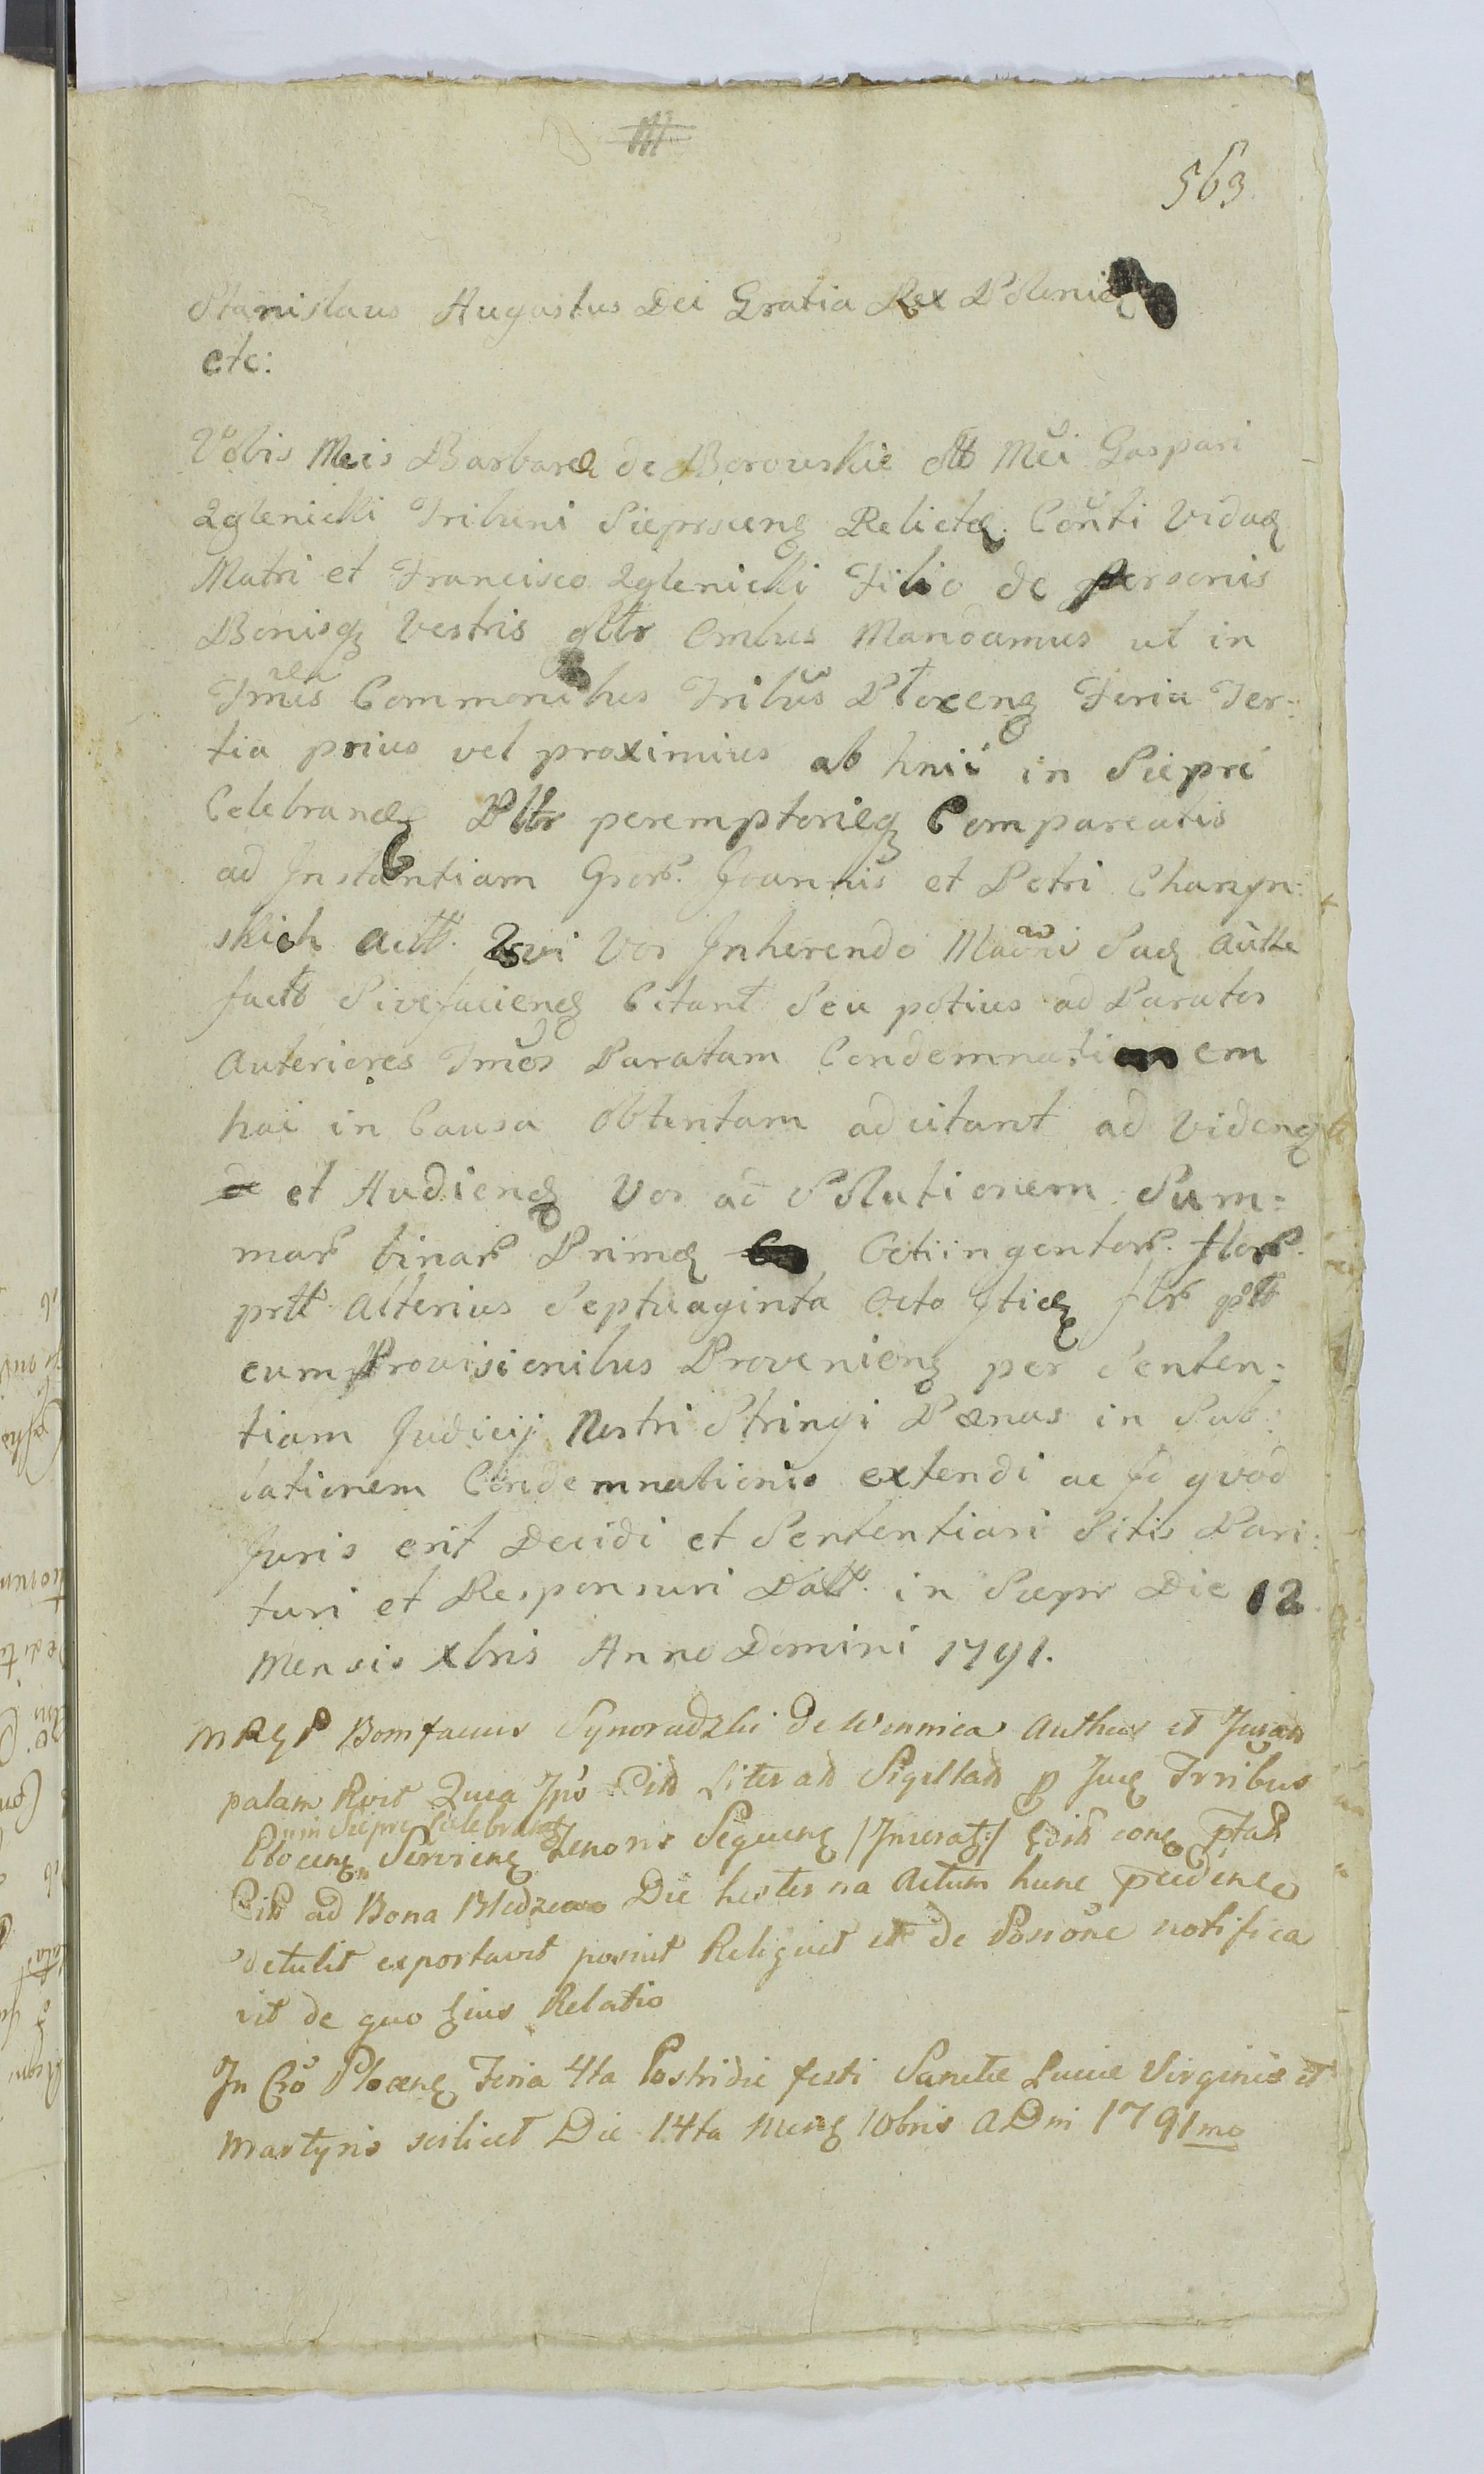 563
Stanislaus Augustus Dei Gratia Rex Poloniæ
etc:
Vobis Mcis Barbaræ de Borowskie olb Mci Gaspari
Zglenicki Tribuni Sieprscens Relictæ Conti Viduæ
Matri et Francisco Zglenicki Filio de personis
Bonisq vestris gltr Ombus Mandamus ut in
Tmis Commonibus Tribus Plocens Feria Ter:
tia prius vel proximius ab hnii in Siepré
Celebrand Pltr peremptorieq Compareatis
ad Instantiam Gror. Joannis et Petri Charzyn:
skich actt. Qui Vos Inherendo Maoni Suæ Autte
factt Sivefaciend Citant Seu potius ad Paratos
Anteriores Tmos Paratam Condemnationem
hac in Causa Obtentam adcitant ad Videnq
et Audiend Vos ad Solutionem Sum=
mar binar Primæ Octiingentor. flor.
prtt alterius Septuaginta Octo Iticq flr ptt
cum Provisionibus Proveniens per Senten:
tiam Judicij Nostri Stringi Pænas in Sub:
lationem Condemnationis extendi ac Id quod
Juris erit Decidi et Sententiari Sitis Pari:
turi et Responsuri Datt. in Siepr Die 12
Mensis Xbris Anno Domini 1791.
Bonifacius Synoradzki de Winnica Authus et Jurats
palam Rvit Quia Ips Citt Litterad Sigillatt p Jud Trribus
in Siepre Celebrand
Plocens Serviens Tenoris Sequens /Inserat:/
Citt ad Bona Bledzewo Die hesterna Actum hunc
detulit exportavit posuit Reliquit et de Possone notifica
vit de quo Ejus Relatio
In Cro Plocens Feria 4ta Postridie festi Sanctæ Luciæ Virginis et
Martyris scilicet Die 14ta Mens 10bris A Dni 1791mo